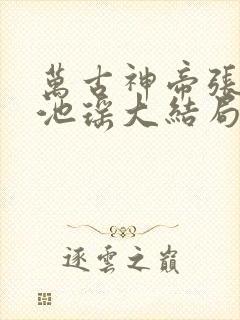 萬古神帝張
池瑤大結局
逐雲之巔